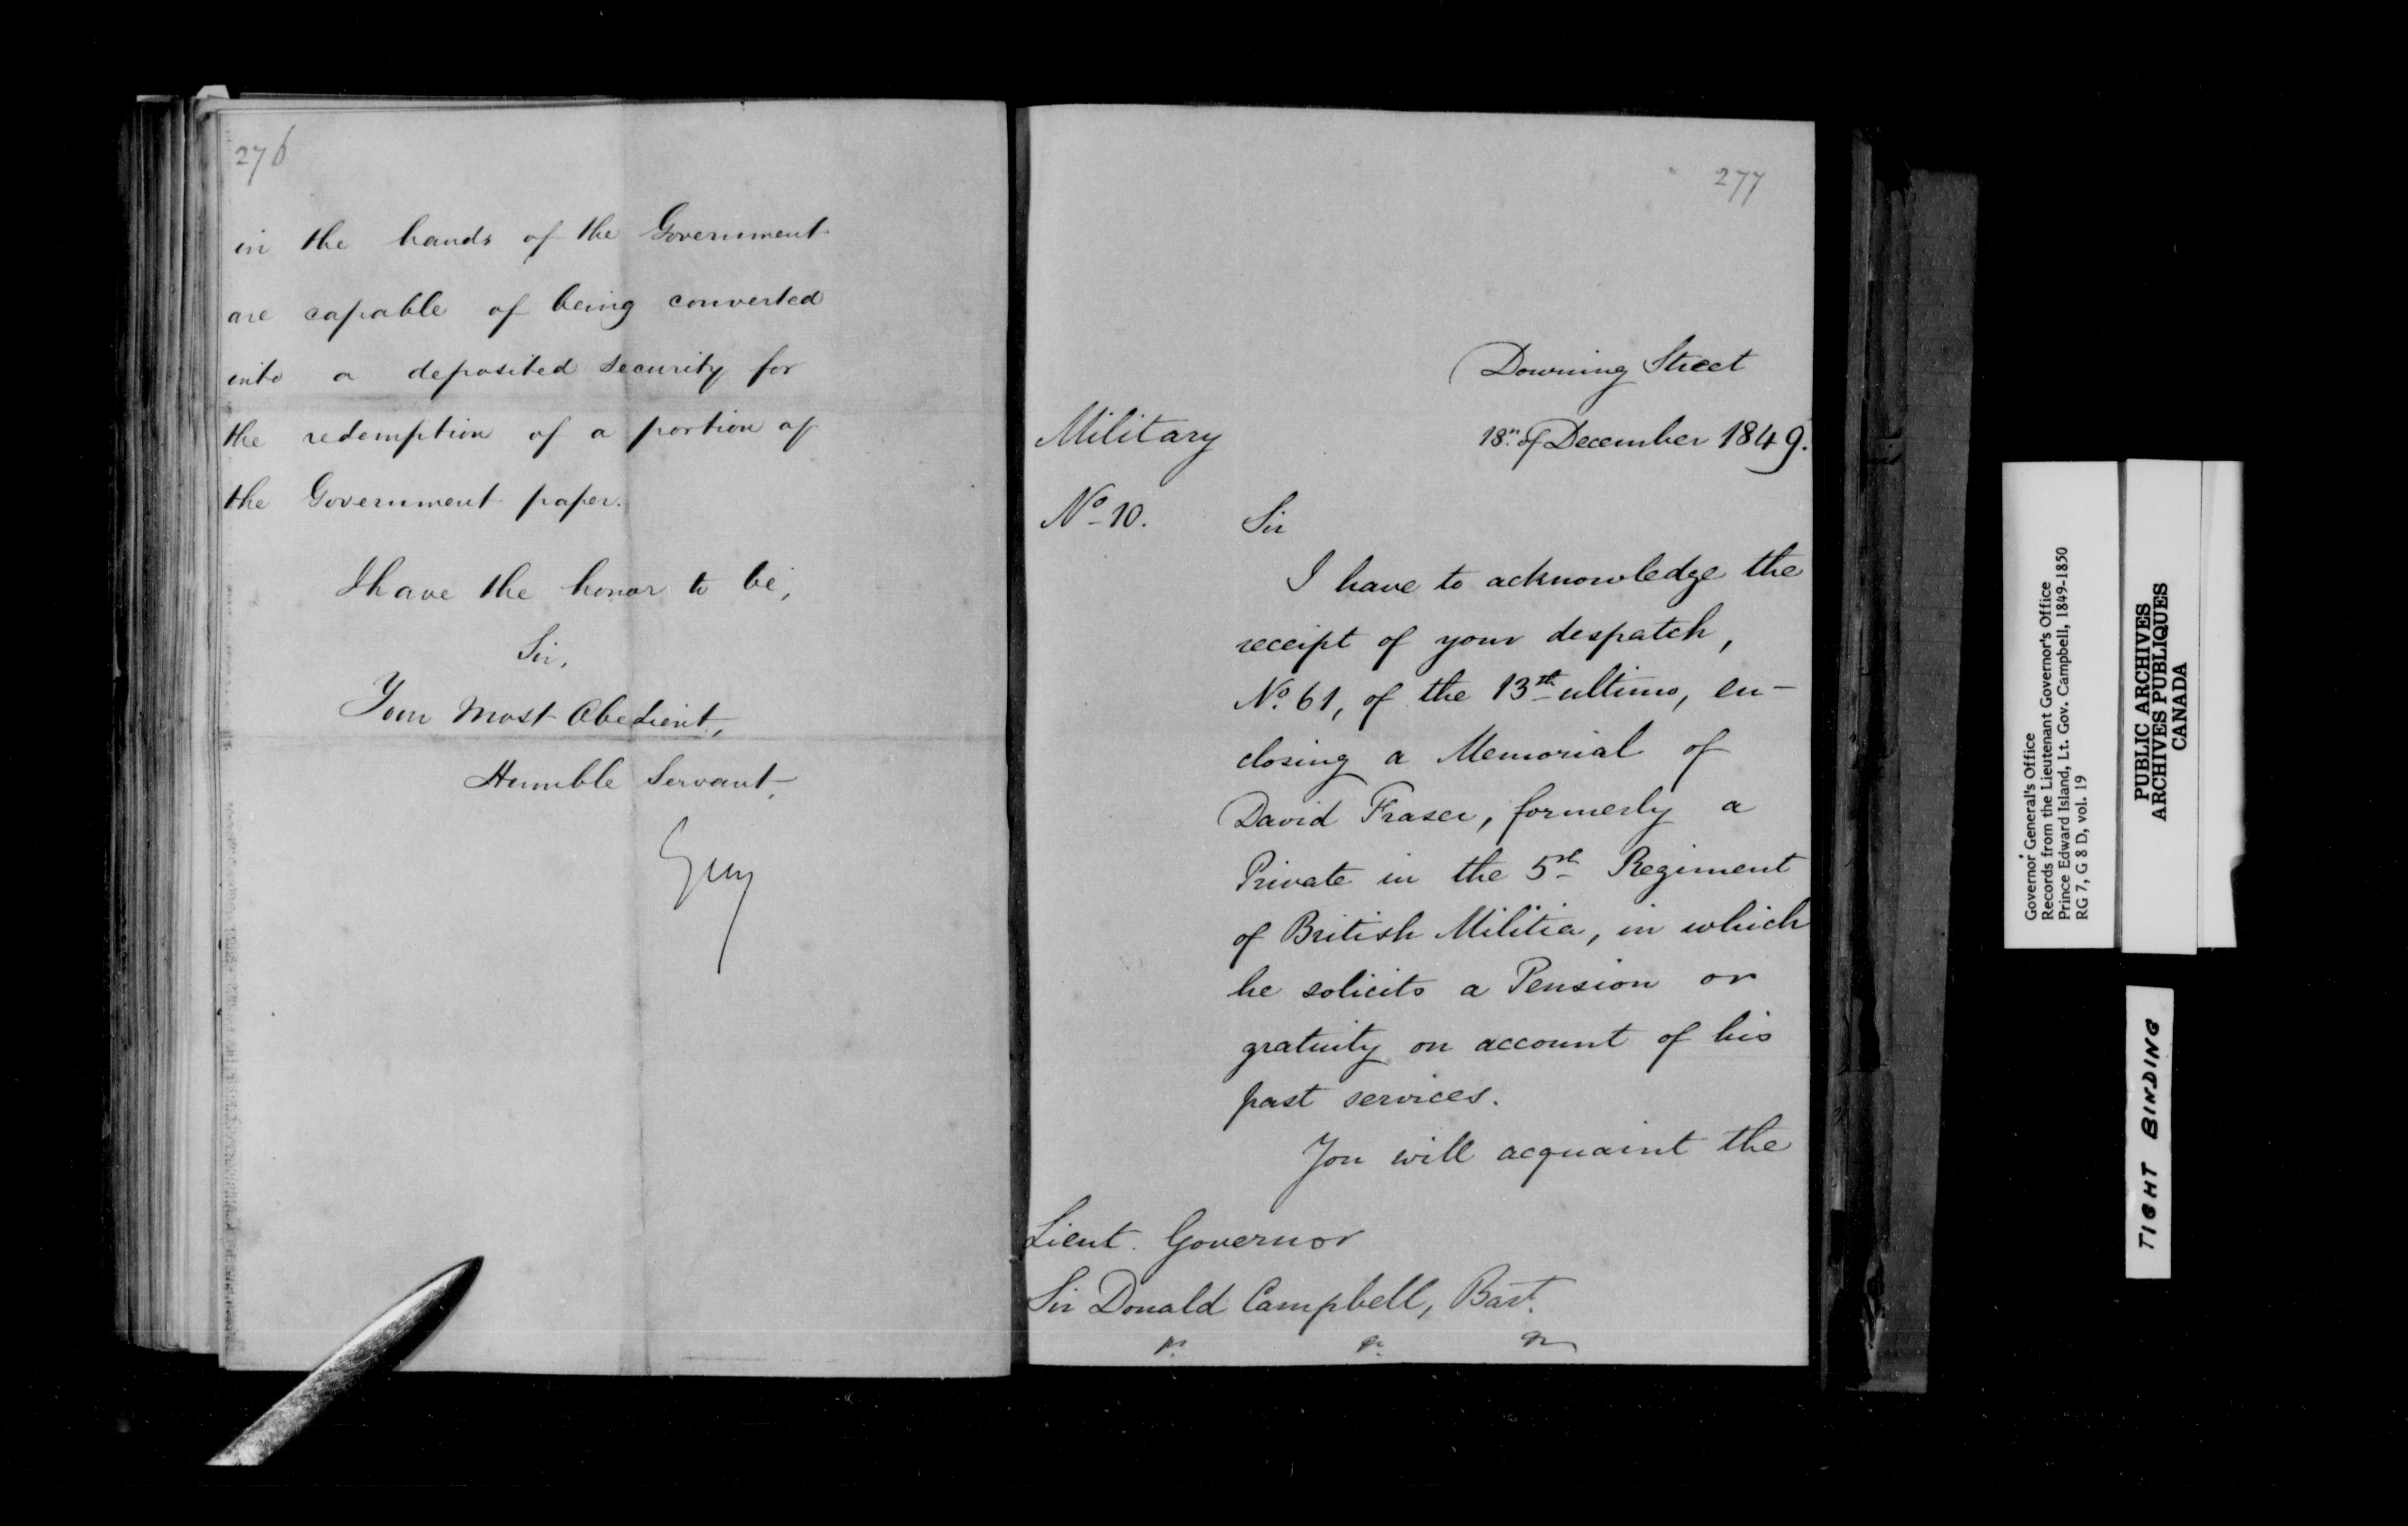 276
in the hands of the Government
are capable of being converted
into a deposited security for
the redemption of a portion of
the Government paper.
I have the honor to be,
Sir,
Your Most Obedient,
Humble Servant,
Grey
277
Downing Street
Military
18th of December 1849.
No 10.
Sir
I have to acknowledge the
receipt of your despatch,
No. 61, of the 13th ultimo, en-
closing a Memorial of
David Fraser, formerly a
Private in the 5th Regiment
of British Militia, in which
he solicits a Pension or
gratuity on account of his
past services.
You will acquaint the
Lieut. Governor
Sir Donald Campbell, Bart.
Governor General's Office
Records from the Lieutenant Governor's Office
Prince Edward Island, Lt. Gov. Campbell, 1849-1850
RG 7, G 8 D, vol. 19
PUBLIC ARCHIVES
ARCHIVES PUBLIQUES
CANADA
TIGHT BINDING